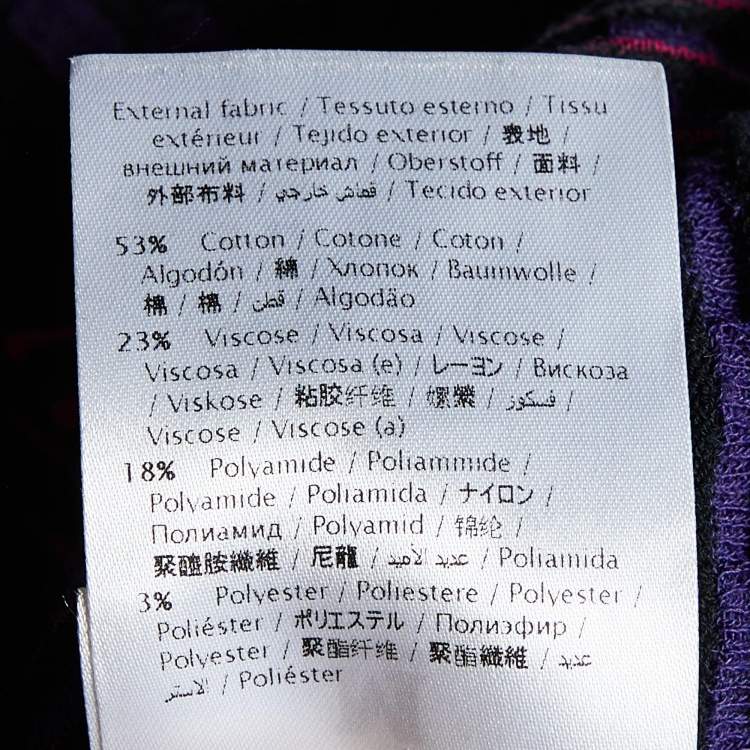 External fabric / Tessuto esterno / Tissu
extérieur / Tejido exterior / 表地 /
внешний материал / Oberstoff / 面料 /
外部布料 / قماش خارجي / Tecido exterior
53% Cotton / Cotone / Coton /
Algodón / 綿 / Хлопок / Baumwolle /
棉 / 棉 / قطن / Algodão
23% Viscose / Viscosa / Viscose /
Viscosa / Viscosa (e) / レーヨン / Вискоза
/ Viskose / 粘胶纤维 / 嫘縈 / فسكوز /
Viscose / Viscose (a)
18% Polyamide / Poliammide /
Polyamide / Poliamida / ナイロン /
Полиамид / Polyamid / 锦纶 /
聚醯胺纖維 / 尼龍 / عديد الأميد / Poliamida
3% Polyester / Poliestere / Polyester /
Poliéster / ポリエステル / Полиэфир /
Polyester / 聚酯纤维 / 聚酯纖維 / عديد
الاستر / Poliéster